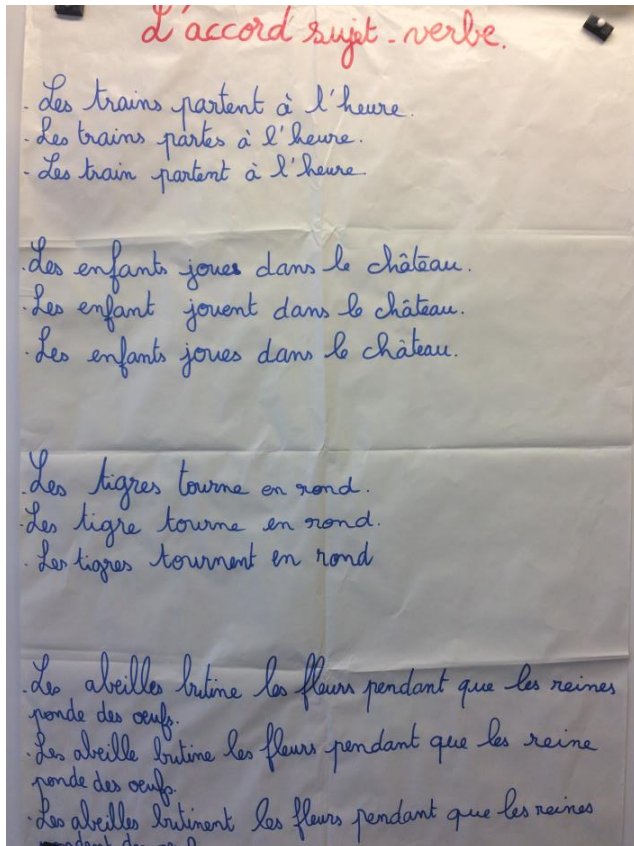 L'accord sujet-verbe.
- Les trains partent à l'heure.
- Les trains partes à l'heure.
- Les train partent à l'heure
. Les enfants joues dans le château.
. Les enfant jouent dans le château.
. Les enfants joues dans le château.
. Les tigres tourne en rond.
. Les tigre tourne en rond.
. Les tigres tournent en rond
. Les abeilles butine les fleurs pendant que les reines
ponde des oeufs.
. Les abeille butine les fleurs pendant que les reine
ponde des oeufs.
. Les abeilles butinent les fleurs pendant que les reines